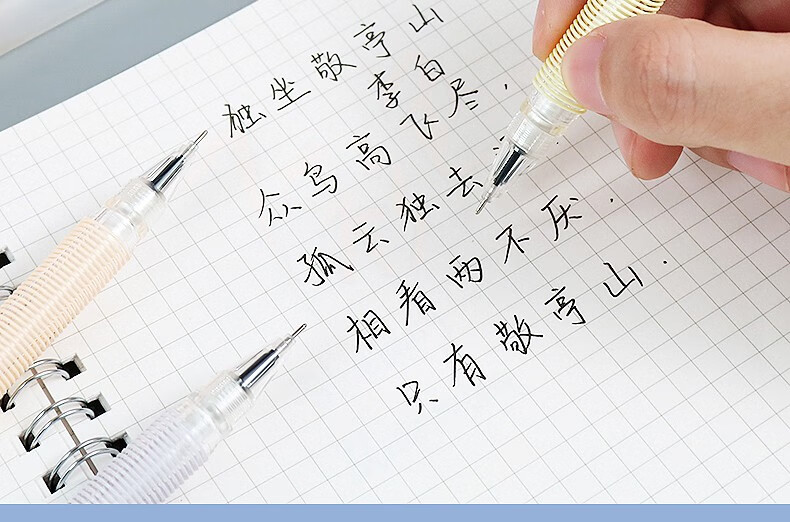 独坐敬亭山
李白
众鸟高飞尽.
孤云独去
相看两不厌.
只有敬亭山.